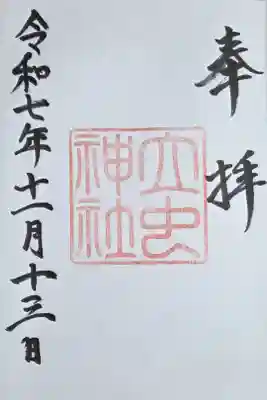 奉拝
立虫神社
令和七年十一月十三日